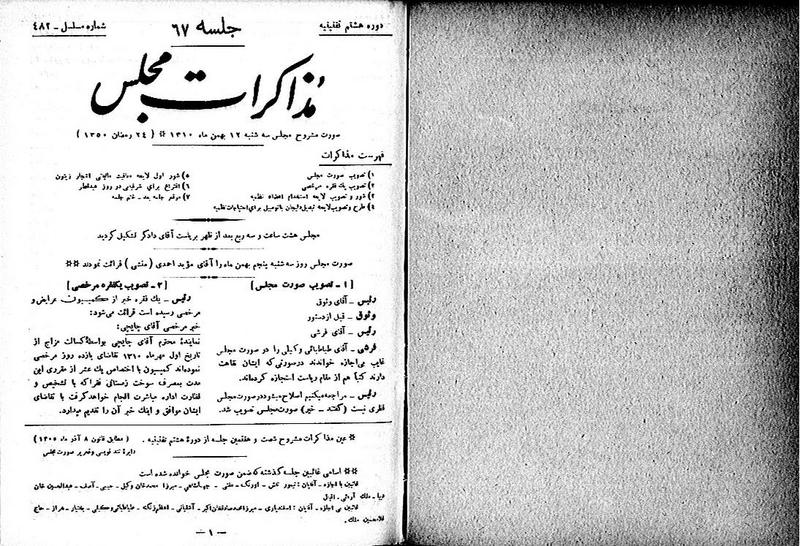 دوره هشتم تقنینیه
جلسه ۶۷
شماره مسلسل - ۴۸۲
مذاکرات مجلس
صورت مشروح مجلس سه شنبه ۱۲ بهمن ماه ۱۳۱۰ ※ ( ۲۴ رمضان ۱۳۵۰ )
فهرست مذاکرات
۱) تصویب صورت مجلس
۲) تصویب یک فقره مرخصی
۳) شور و تصویب لایحه استخدام اعضاء نظمیه
۴) طرح و تصویب لایحه تبدیل دلیجان باتومبیل برای احتیاجات نظمیه
۵) شور اول لایحه معافیت مالیاتی اشجار زیتون
۶) اقتراع برای شرفیابی در روز عیدفطر
۷) موقع جلسه بعد - ختم جلسه
مجلس هشت ساعت و سه ربع بعد از ظهر بریاست آقای دادگر تشکیل گردید
صورت مجلس روز سه شنبه پنجم بهمن ماه را آقای مؤید احمدی (منشی) قرائت نمودند ※※
[ ۱ - تصویب صورت مجلس ]
رئیس - آقای وثوق
وثوق - قبل از دستور
رئیس - آقای فرشی
فرشی - آقای طباطبائی وکیلی را در صورت مجلس
غایب بی‌اجازه خواندند درصورتی که ایشان نقاهت
دارند کتباً هم از مقام ریاست استجازه کرده‌اند.
رئیس - مراجعه میکنیم اصلاح میشود در صورت مجلس
نظری نیست (گفتند - خیر) صورت مجلس تصویب شد.
[ ۲ - تصویب یکفقره مرخصی ]
رئیس - یک فقره خبر از کمیسیون عرایض و
مرخصی رسیده است قرائت می‌شود:
خبر مرخصی آقای چایچی:
نماینده محترم آقای چایچی بواسطهٔ کسالت مزاج از
تاریخ اول مهرماه ۱۳۱۰ تقاضای یازده روز مرخصی
نموده‌اند کمیسیون با اختصاص یک عشر از مقرری این
مدت بمصرف سوخت زمستانی فقرا که با تشخیص و
نظارت اداره مباشرت انجام خواهد گرفت با تقاضای
ایشان موافق و اینک خبر آن را تقدیم میدارد.
※ عین مذاکرات مشروح شصت و هفتمین جلسه از دورهٔ هشتم تقنینیه . ( مطابق قانون ۸ آذر ماه ۱۳۰۵ )
دایرهٔ تند نویسی و تحریر صورت مجلس
※※ اسامی غائبین جلسه گذشته که ضمن صورت مجلس خوانده شده است
غائبین با اجازه - آقایان : تیمور تاش - اورنگ - مفتی - جهانشاهی - میرزا محمدخان وکیل - حبیبی - آصف - عبدالحسین خان
دیبا - ملک آرائی - اقبال
غائبین بی اجازه - آقایان : اسفندیاری - میرزا محمد صادق خان اکبر - آشتیانی - اعظم زنگنه - طباطبائی وکیلی - بختیار - هراز - حاج
غلامحسین ملک.
- ۱ -